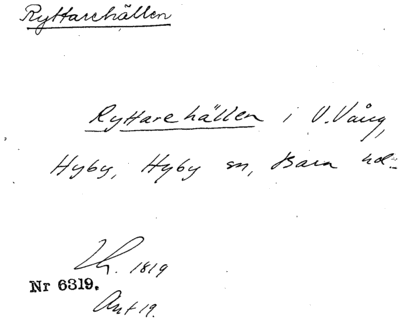 Ryttarehällen
Ryttarehällen i V. Vång,
Hyby, Hyby sn, Bara hd.
Lh. 1819
Nr 6319.
Ant 19.